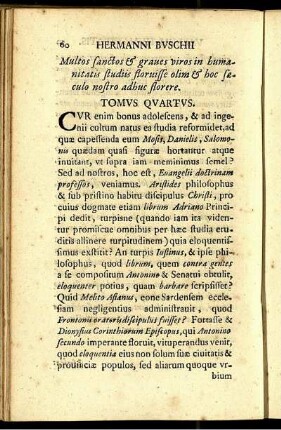 60 HERMANNI BVSCHII
Multos sanctos & graues viros in huma-
nitatis studiis floruisse olim & hoc sæ-
culo nostro adhuc florere.
TOMVS QVARTVS.
CVR enim bonus adolescens, & ad inge-
nii cultum natus ea studia reformidet, ad
quæ capessenda eum Mosis, Danielis, Salomo-
nis quædam quasi figuræ hortantur atque
inuitant, vt supra iam meminimus semel?
Sed ad nostros, hoc est, Euangelii doctrinam
professos, veniamus. Aristides philosophus
& sub pristino habitu discipulus Christi, pro
cuius dogmate etiam librum Adriano Princi-
pi dedit, turpisne (quando iam ita viden-
tur promiscue omnibus per hæc studia eru-
diti allinere turpitudinem) quia eloquentis-
simus exstitit? An turpis Iustinus, & ipse phi-
losophus, quod librum, quem contra gentes
a se compositum Antonino & Senatui obtulit,
eloquenter potius, quam barbare scripsisset?
Quid Melito Asianus, cone Sardensem eccle-
siam negligentius administrauit, quod
Frontonis oratoris discipulus fuisset? Fortasse &
Dionysius Corinthiorum Episcopus, qui Antonino
secundo imperante floruit, vituperandus venit,
quod eloquentia eius non solum suæ ciuitatis &
prouinciæ populos, sed aliarum quoque vr-
bium